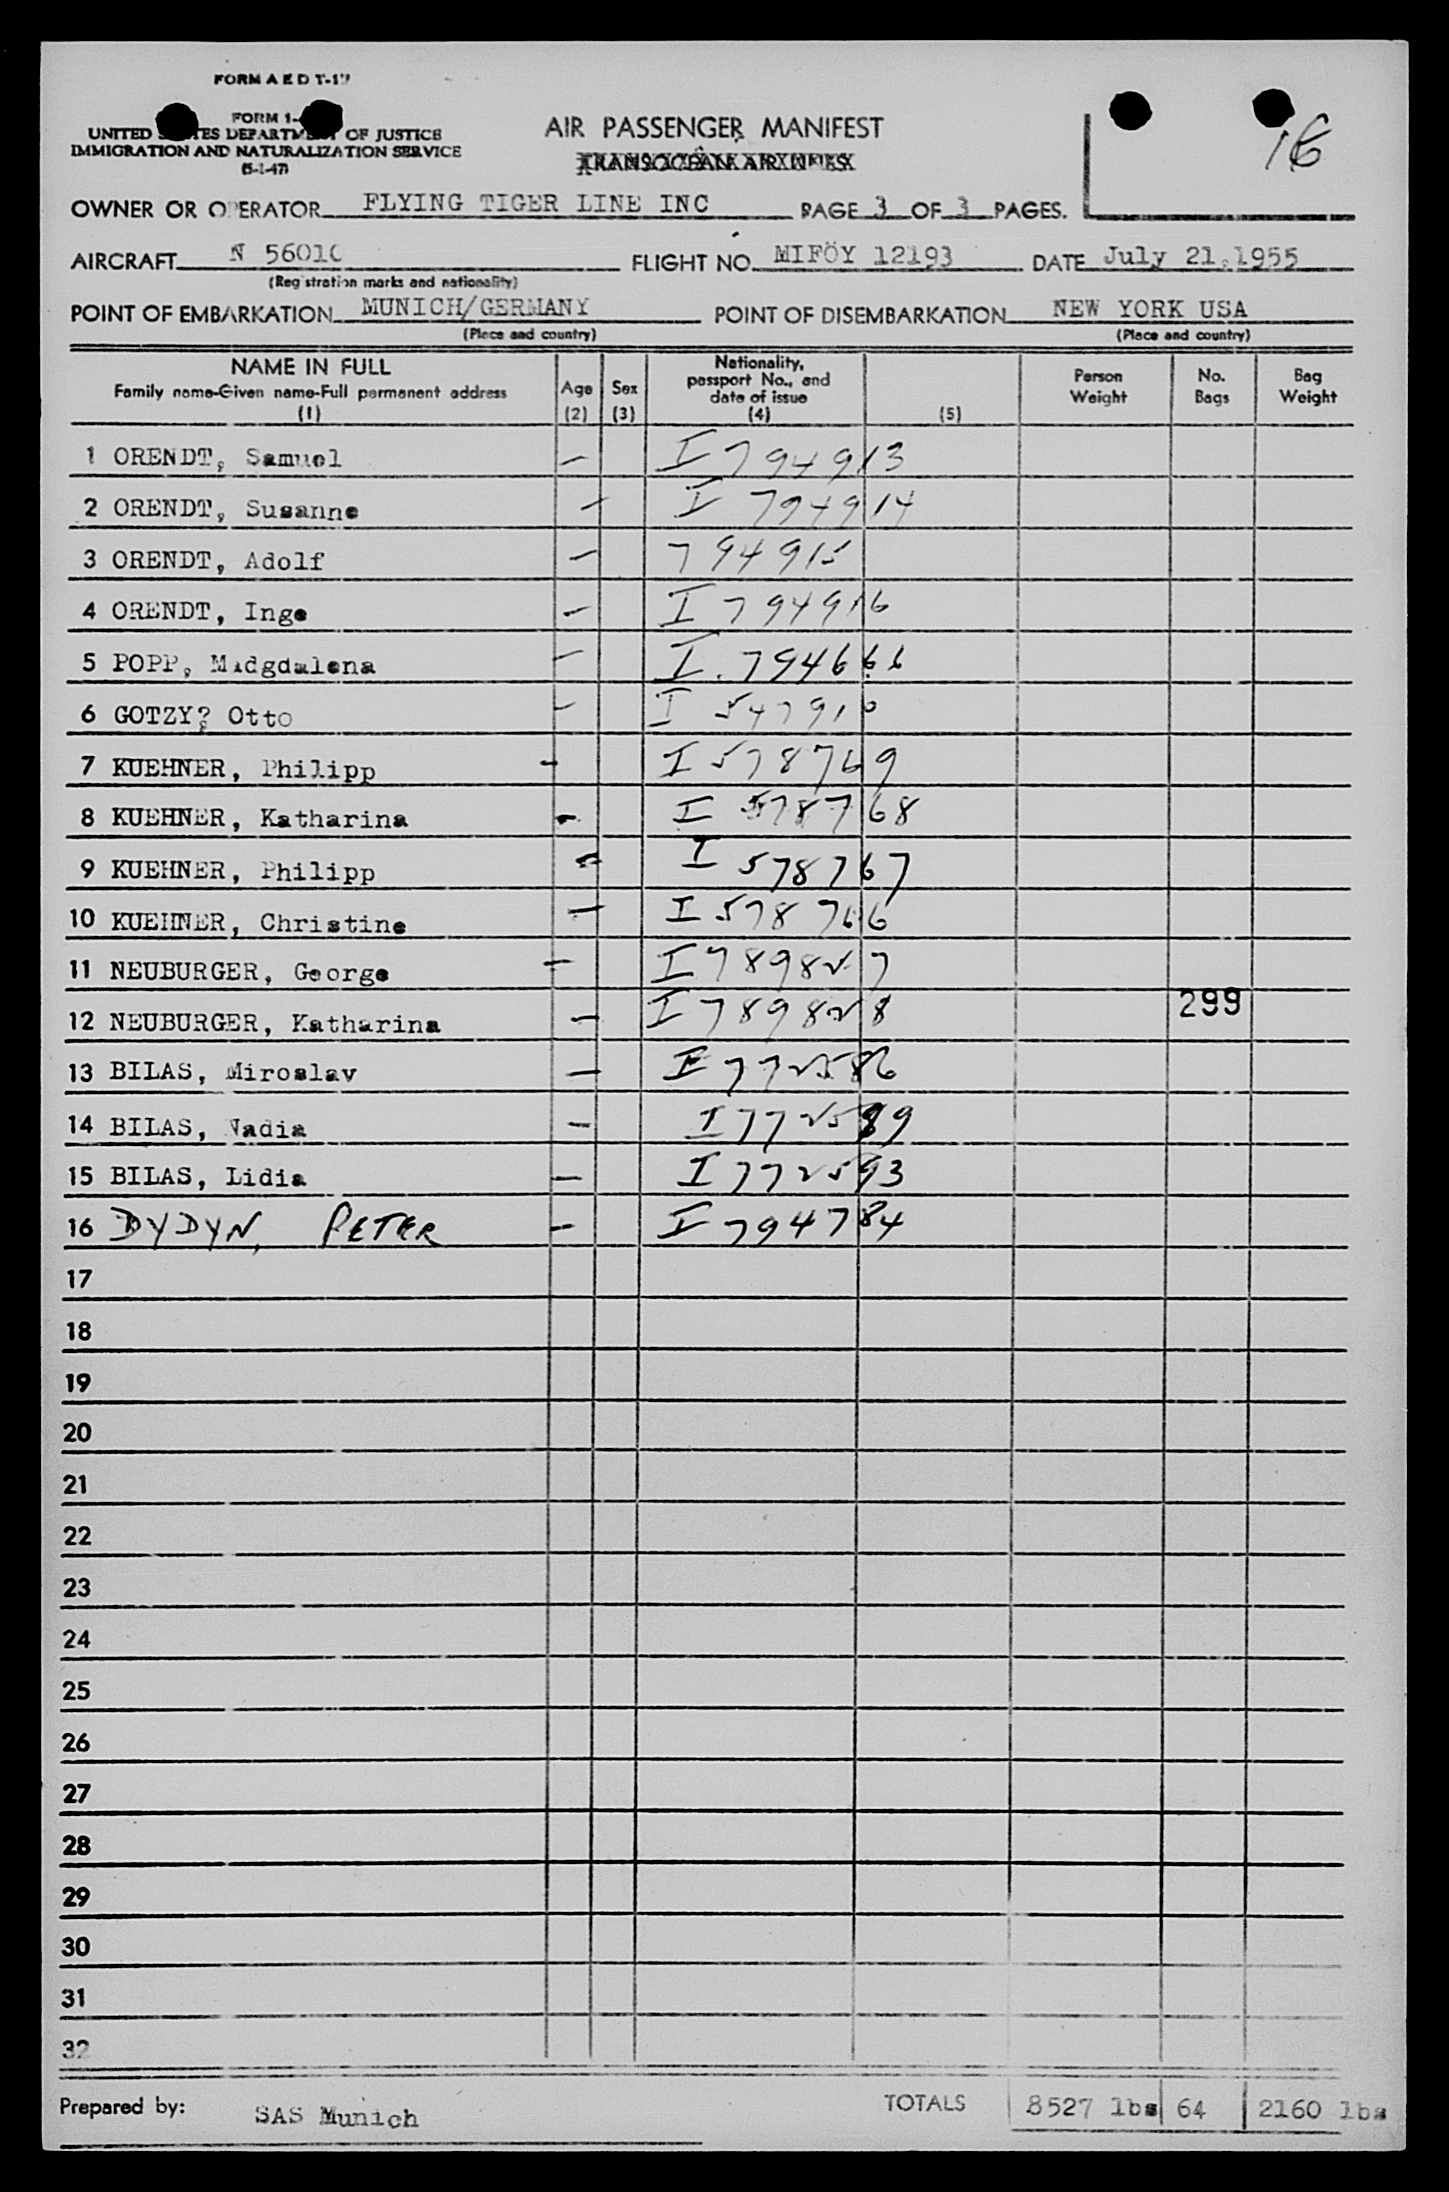 FORM A E D T-1
FORM 1-
UNITED STATES DEPARTMENT OF JUSTICE
IMMIGRATION AND NATURALIZATION SERVICE
(5-1-47)
AIR PASSENGER MANIFEST
TRANSOCEAN AIR LINES
16
OWNER OR OPERATOR FLYING TIGER LINE INC PAGE 3 OF 3 PAGES.
AIRCRAFT N 5601C FLIGHT NO. MIFÖY 12193 DATE July 21,1955
(Registration marks and nationality)
POINT OF EMBARKATION MUNICH/GERMANY POINT OF DISEMBARKATION NEW YORK USA
(Place and country) (Place and country)
NAME IN FULL
Family name-Given name-Full permanent address
(1)
Age
(2)
Sex
(3)
Nationality,
passport No., and
date of issue
(4)
(5)
Person
Weight
No.
Bags
Bag
Weight
1 ORENDT, Samuel — I 794913
2 ORENDT, Susanne — I 794914
3 ORENDT, Adolf — 794915
4 ORENDT, Inge — I 794916
5 POPP, Madgdalena — I. 794666
6 GOTZY? Otto — I 547910
7 KUEHNER, Philipp — I 578769
8 KUEHNER, Katharina — I 578768
9 KUEHNER, Philipp — I 578767
10 KUEHNER, Christine — I 578766
11 NEUBURGER, George — I 789827
12 NEUBURGER, Katharina — I 789828 299
13 BILAS, Miroslav — I 772586
14 BILAS, Nadia — I 772589
15 BILAS, Lidia — I 772593
16 DYDYN, PETER — I 794784
17
18
19
20
21
22
23
24
25
26
27
28
29
30
31
32
Prepared by: SAS Munich TOTALS 8527 lbs 64 2160 lbs